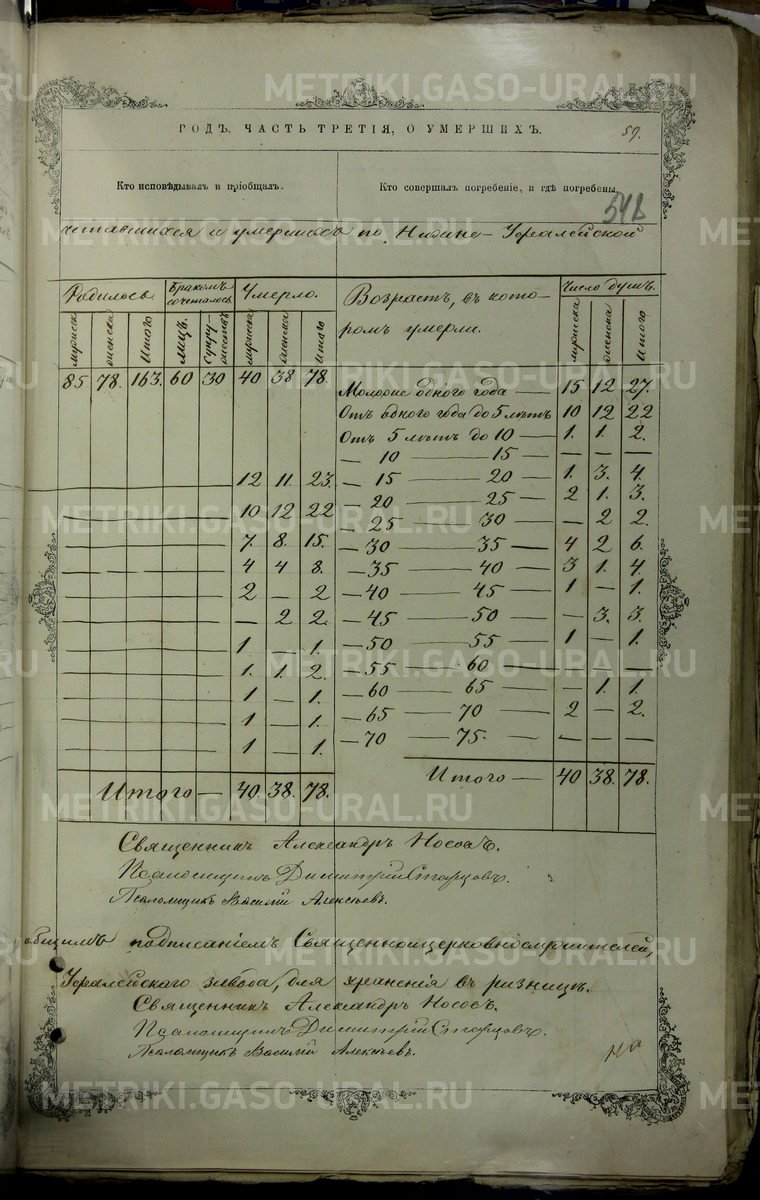 ГОДЪ, ЧАСТЬ ТРЕТІЯ, О УМЕРШИХЪ.
59.
Кто исповѣдывалъ и пріобщалъ.
Кто совершалъ погребеніе, и гдѣ погребены.
548
четавшихся и умершихъ по Нижне-Уфалейской
Родилось. Бракомъ сочеталось. Умерло. Возрастъ, въ которомъ умерли. Число душъ.
мужеска женска Итого лицъ. супружествъ мужеска женска Итого мужеска женска Итого
85 78. 163. 60 30 40 38 78.
Молодше одного года — 15 12 27.
Отъ одного года до 5 лѣтъ 10 12 22
Отъ 5 лѣтъ до 10 — 1. 1. 2.
— 10 — 15 — — — —
12 11. 23. — 15 — 20 — 1. 3. 4.
— 20 — 25 — 2 1. 3.
10 12 22 — 25 — 30 — — 2 2.
7 8. 15. — 30 — 35 — 4 2 6.
4 4 8. — 35 — 40 — 3 1. 4.
2 — 2 — 40 — 45 — 1 — 1.
— 2 2. — 45 — 50 — — 3. 3.
1 — 1. — 50 — 55 — 1 — 1.
1. 1. 2. — 55 — 60 — — — —
1 — 1. — 60 — 65 — — 1. 1.
1 — 1. — 65 — 70 — 2 — 2.
1 — 1. — 70 — 75. — — — —
Итого — 40. 38. 78. Итого — 40 38. 78.
Священникъ Александръ Носовъ.
Псаломщикъ Димитрій Старцовъ.
Псаломщикъ Василій Алексѣевъ.
общимъ подписаніемъ Священноцерковнослужителей,
Уфалейскаго завода, для храненія въ ризницѣ.
Священникъ Александръ Носовъ.
Псаломщикъ Димитрій Старцовъ.
Псаломщикъ Василій Алексѣевъ.
METRIKI.GASO-URAL.RU